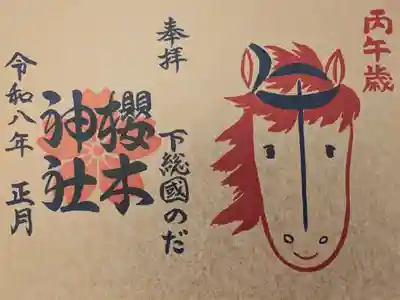 丙午歳
奉拝
下総國のだ
櫻木
神社
令和八年 正月